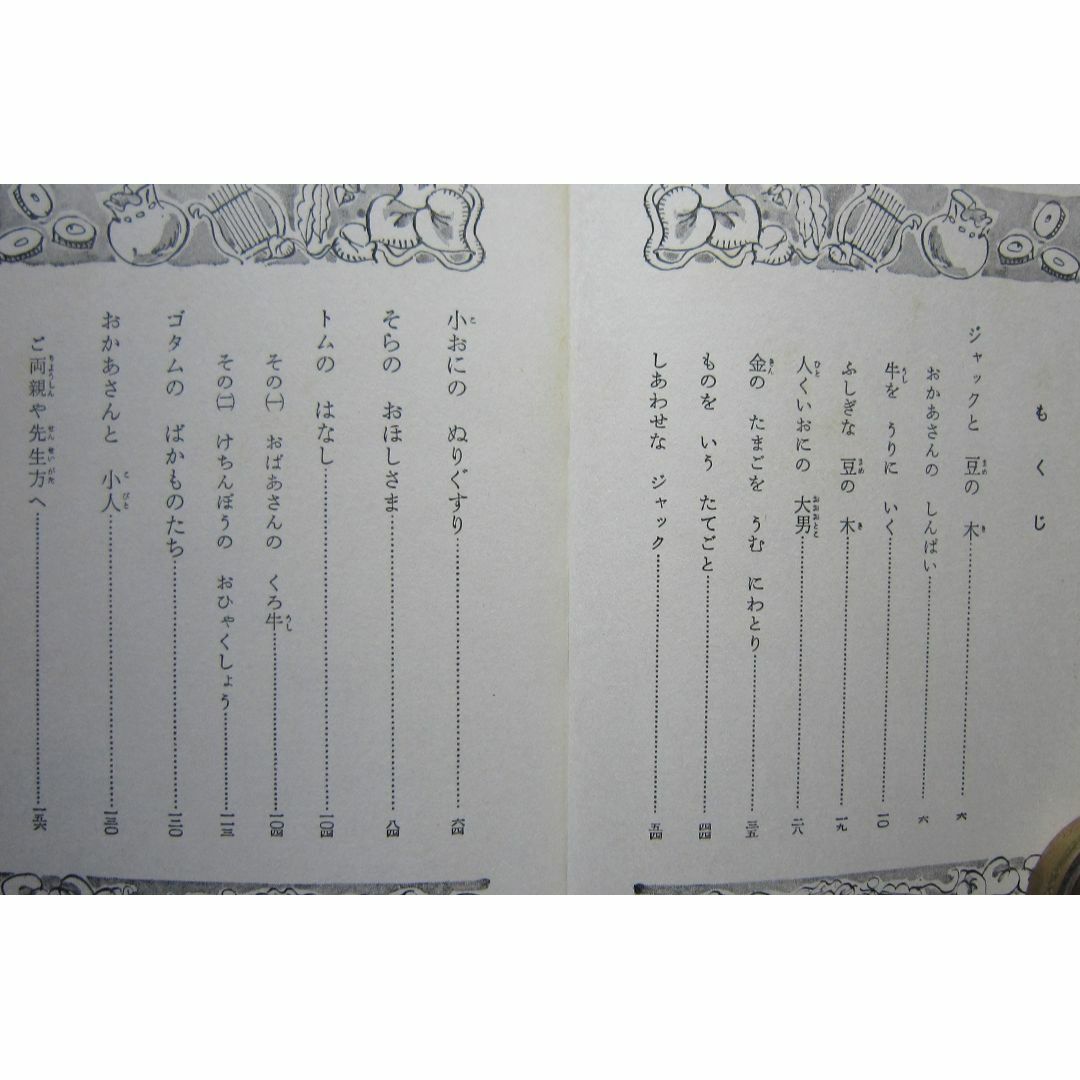 もくじ
ジャックと 豆の 木…………六
おかあさんの しんぱい…………六
牛を うりに いく…………一〇
ふしぎな 豆の 木…………一九
人くいおにの 大男…………二八
金の たまごを うむ にわとり…………三五
ものを いう たてごと…………四四
しあわせな ジャック…………五四
小おにの ぬりぐすり…………六四
そらの おほしさま…………八四
トムの はなし…………一〇四
その(一) おばあさんの くろ牛…………一〇四
その(二) けちんぼうの おひゃくしょう…………一一三
ゴタムの ばかものたち…………一二〇
おかあさんと 小人…………一三〇
ご両親や先生方へ…………一五六